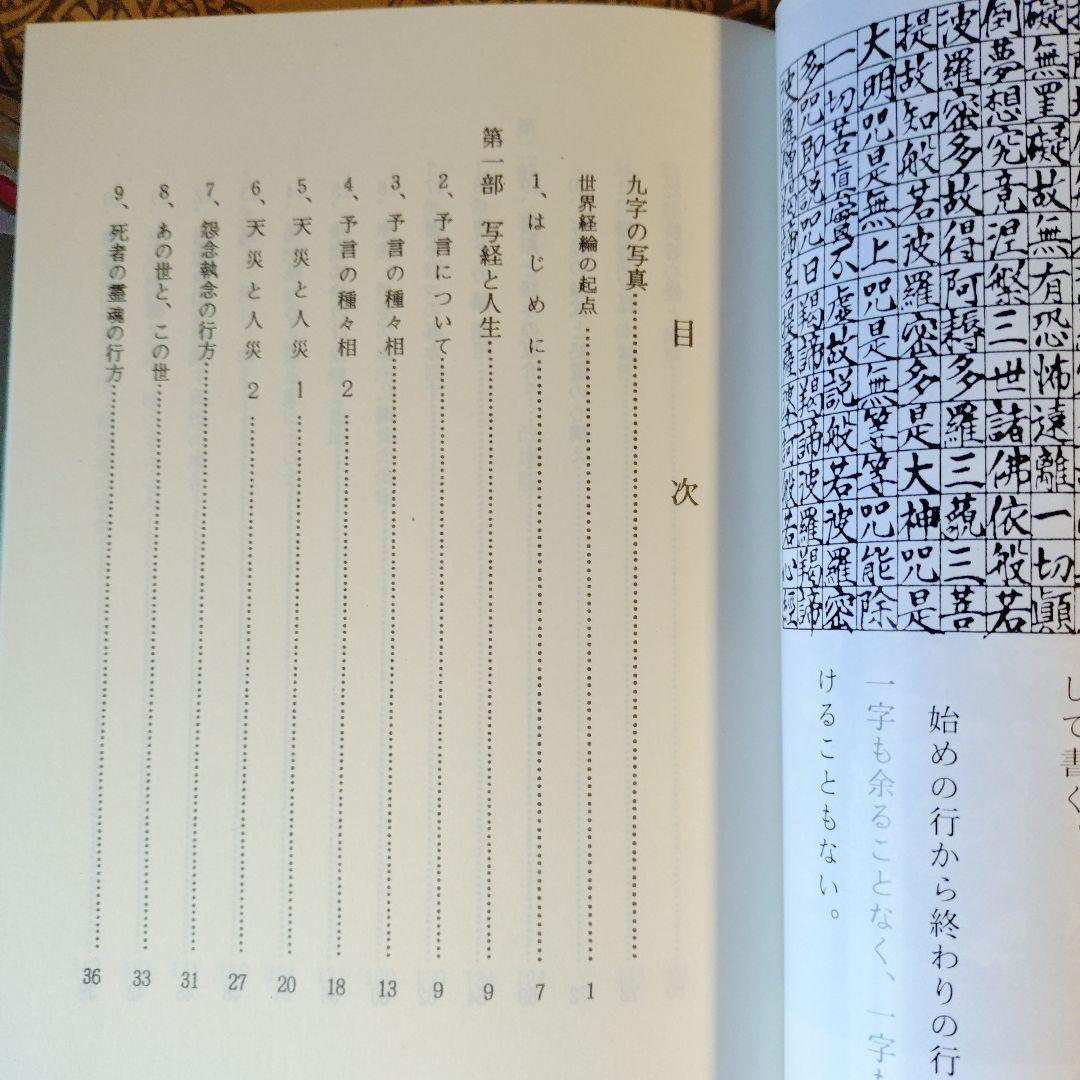 礙無罣礙故無有恐怖遠離一切顛
倒夢想究竟涅槃三世諸佛依般若
波羅密多故得阿耨多羅三藐三菩
提故知般若波羅密多是大神咒是
大明咒是無上咒是無等等咒能除
一切苦眞實不虛故説般若波羅密
多咒即説咒曰羯諦羯諦波羅羯諦
波羅僧羯諦菩提薩婆訶般若心經
して書く
始めの行から終わりの行
一字も余ることなく、一字も
けることもない。
目次
九字の写真
世界経綸の起点 1
1、はじめに 7
第一部 写経と人生 9
2、予言について 9
3、予言の種々相 13
4、予言の種々相 2 18
5、天災と人災 1 20
6、天災と人災 2 27
7、怨念執念の行方 31
8、あの世と、この世 33
9、死者の霊魂の行方 36